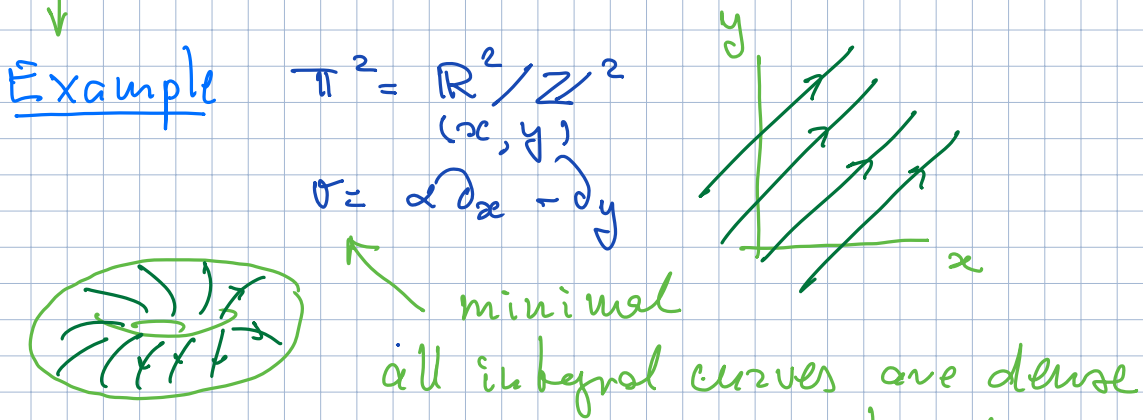 y
Example 𝕋² = ℝ²/ℤ²
(x, y)
v = α∂x - ∂y
x
minimal
all integral curves are dense